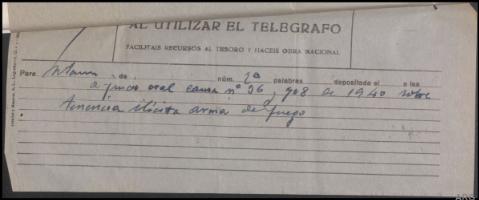 AL UTILIZAR EL TELEGRAFO
FACILITAIS RECURSOS AL TESORO Y HACEIS OBRA NACIONAL
Para de núm. 2ª palabras depositado el a las
a juicio oral causa nº 96, 908 de 1940 sobre
tenencia ilícita arma de fuego